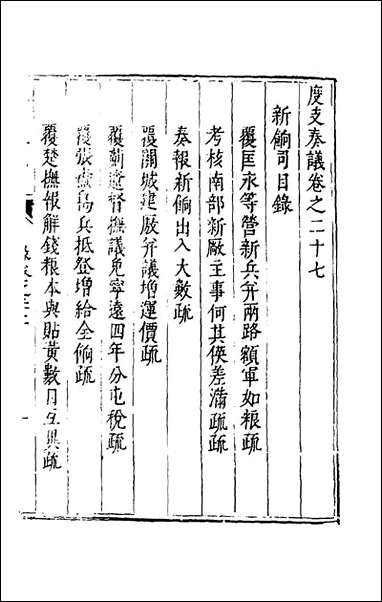 度支奏議卷之二十七
新餉司目錄
覆匡永等營新兵并兩路額軍加粮疏
考核南部新厰主事何其俠差滿疏
奏報新餉出入大數疏
覆關城建厫并議增運價疏
覆薊遼督撫議免寧遠四年分屯稅疏
覆張燾島兵抵登增給全餉疏
覆楚撫報解錢粮本與貼黄數目互異疏